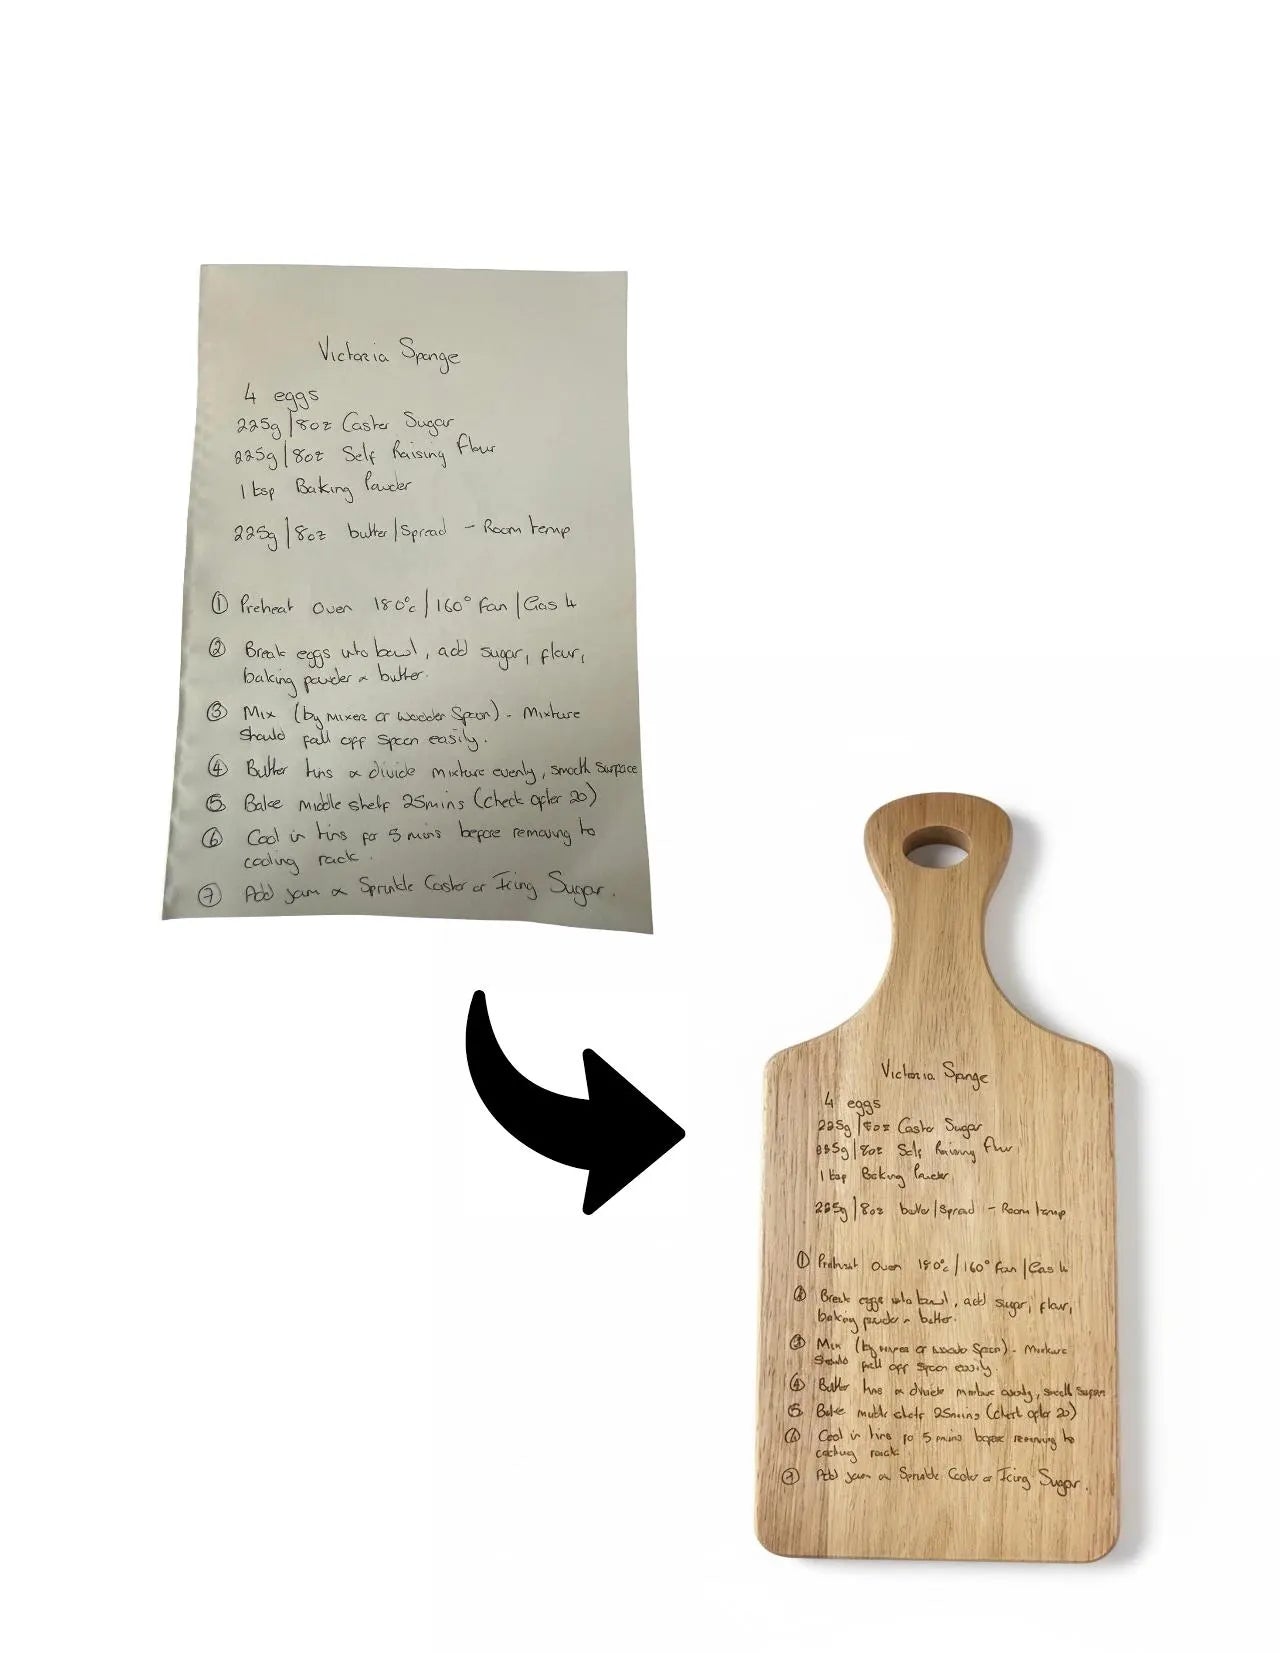 Victoria Sponge
4 eggs
225g/8oz Caster Sugar
225g/8oz Self Raising Flour
1 tsp Baking Powder
225g/8oz butter/Spread - Room temp
① Preheat Oven 180°c/160° Fan/Gas 4
② Break eggs into bowl, add sugar, flour,
baking powder & butter.
③ Mix (by mixer or wooden Spoon) - Mixture
should fall off spoon easily.
④ Butter tins & divide mixture evenly, smooth surface
⑤ Bake middle shelf 25mins (check after 20)
⑥ Cool in tins for 5 mins before removing to
cooling rack.
⑦ Add jam & Sprinkle Caster or Icing Sugar.
Victoria Sponge
4 eggs
225g/8oz Caster Sugar
225g/8oz Self Raising Flour
1 tsp Baking Powder
225g/8oz butter/Spread - Room temp
① Preheat Oven 180°c/160° Fan/Gas 4
② Break eggs into bowl, add sugar, flour,
baking powder & butter.
③ Mix (by mixer or wooden Spoon) - Mixture
should fall off spoon easily.
④ Butter tins & divide mixture evenly, smooth surface
⑤ Bake middle shelf 25mins (check after 20)
⑥ Cool in tins for 5 mins before removing to
cooling rack.
⑦ Add jam & Sprinkle Caster or Icing Sugar.